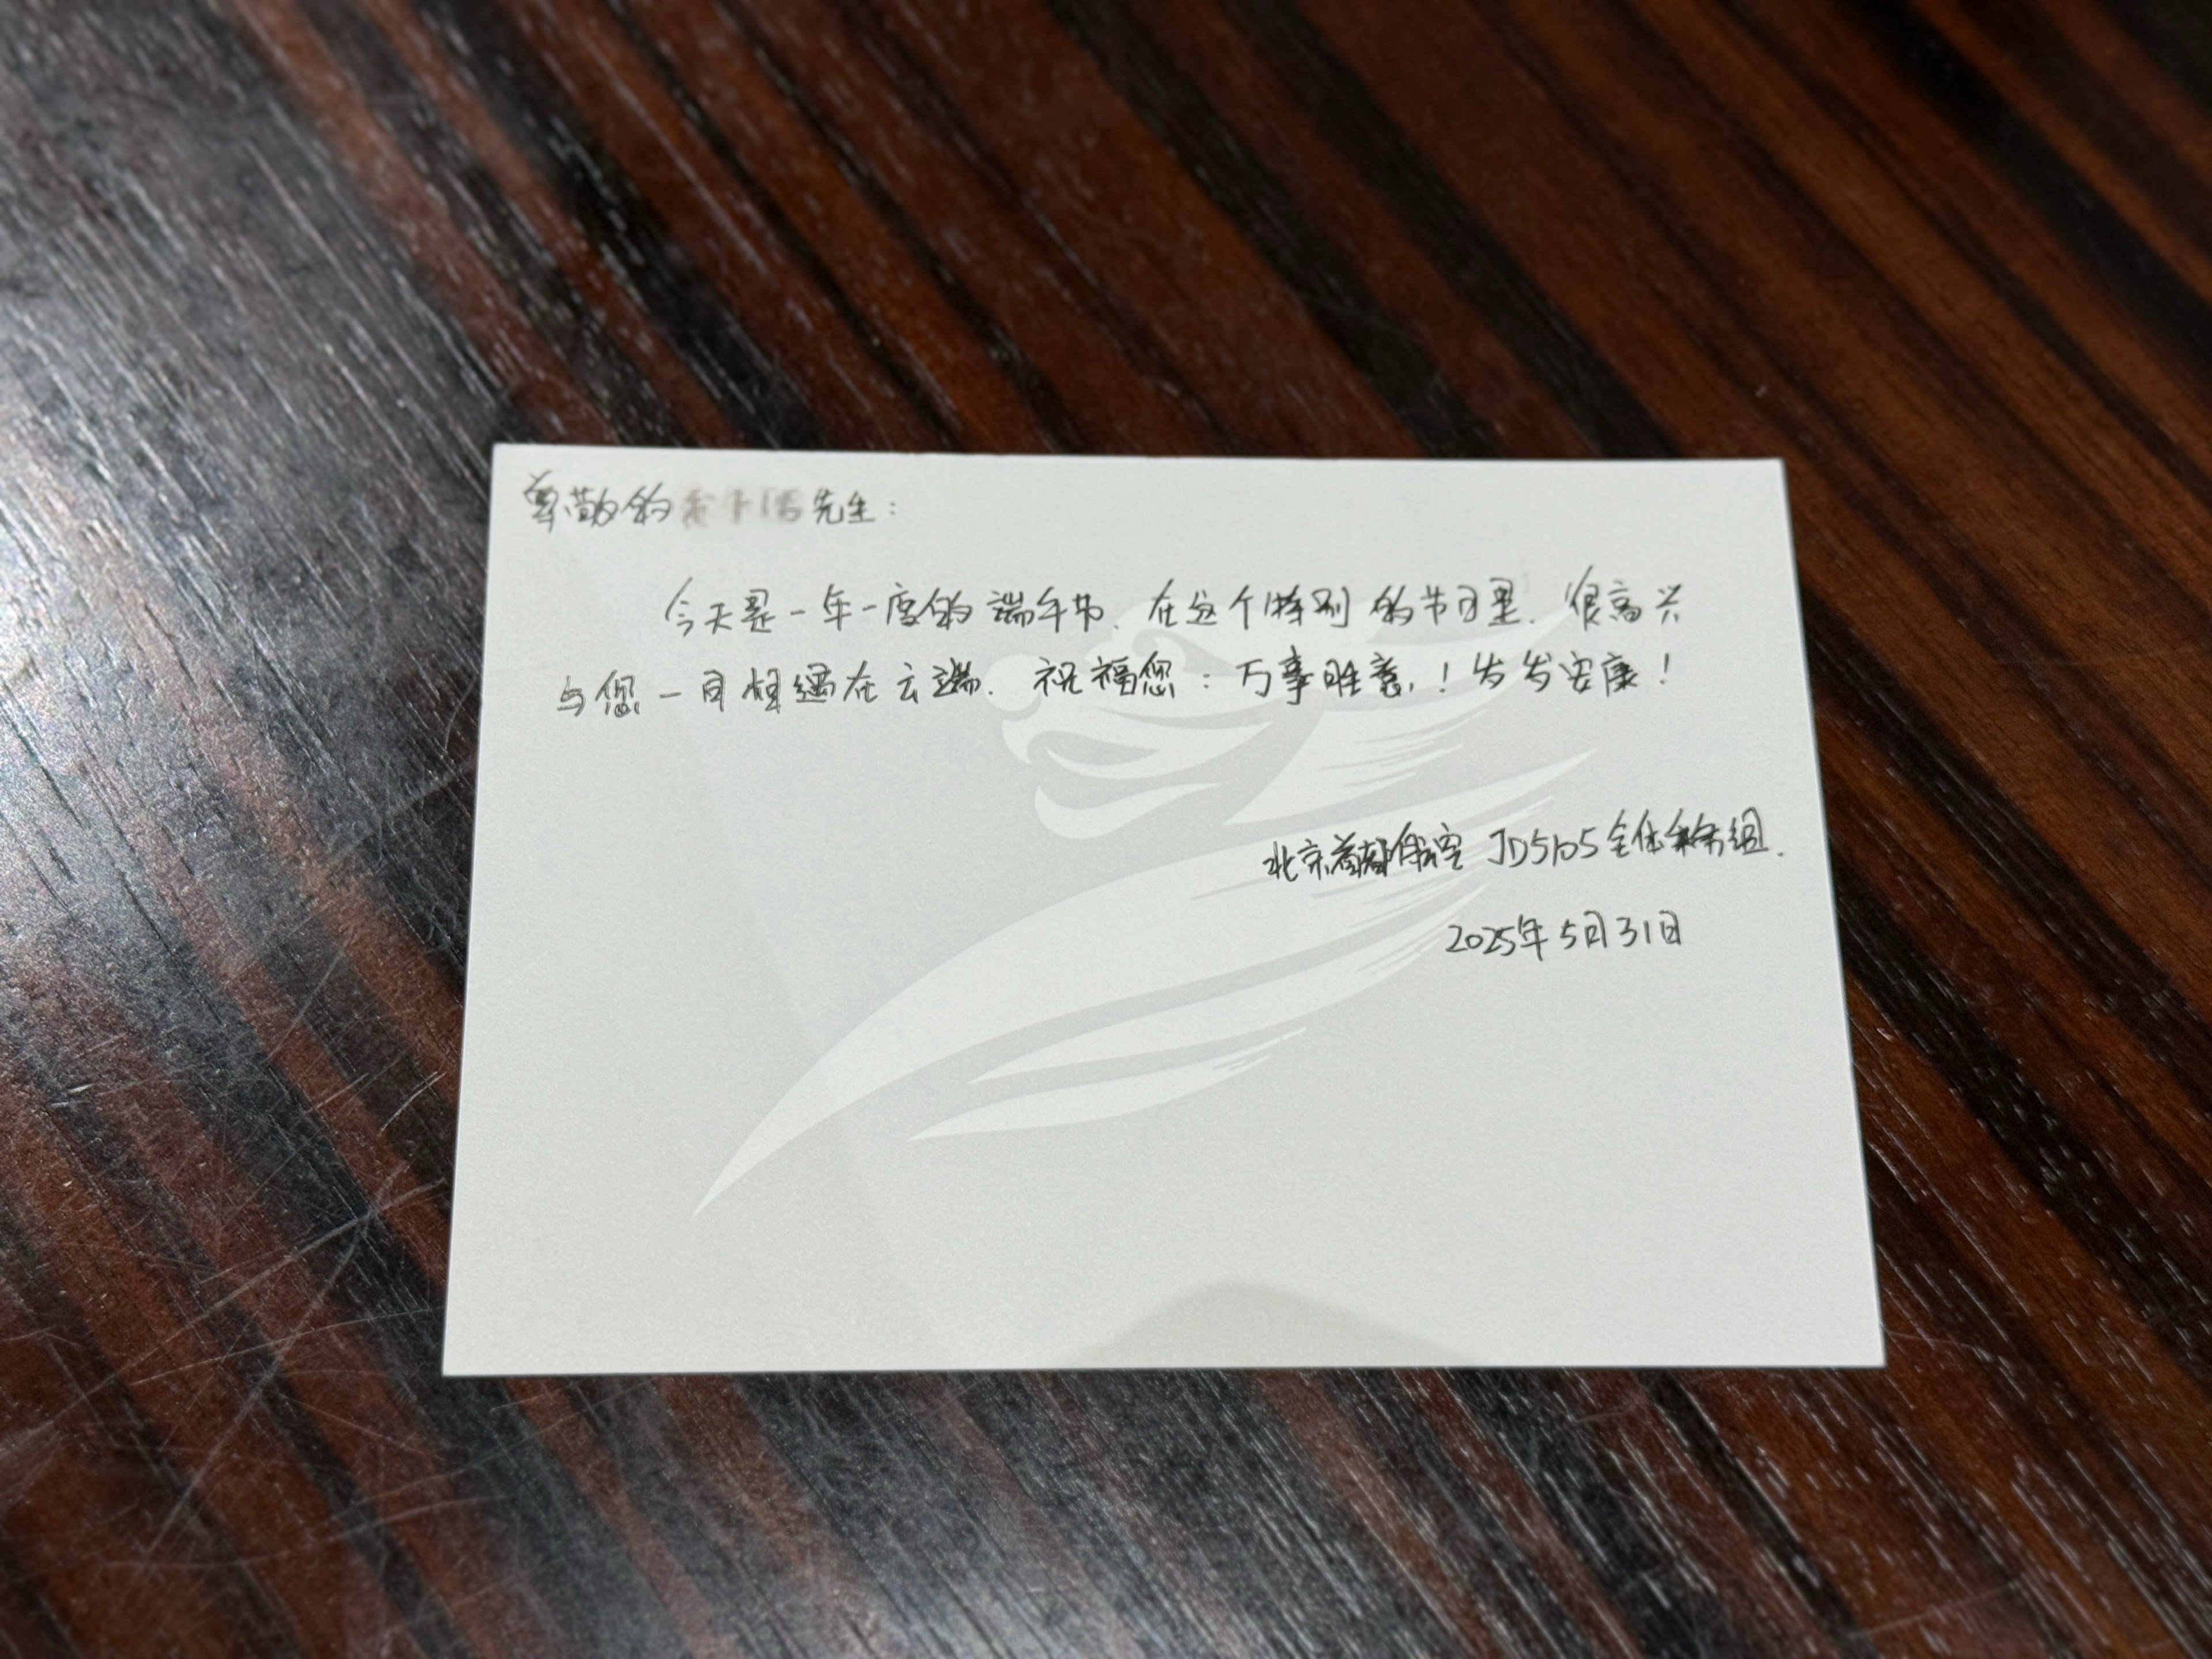 尊敬的先生：
今天是一年一度的端午节.在这个特别的节日里.很高兴
与您一同相遇在云端.祝福您：万事胜意！岁岁安康！
北京首都航空 JD5105全体乘务组.
2025年5月31日